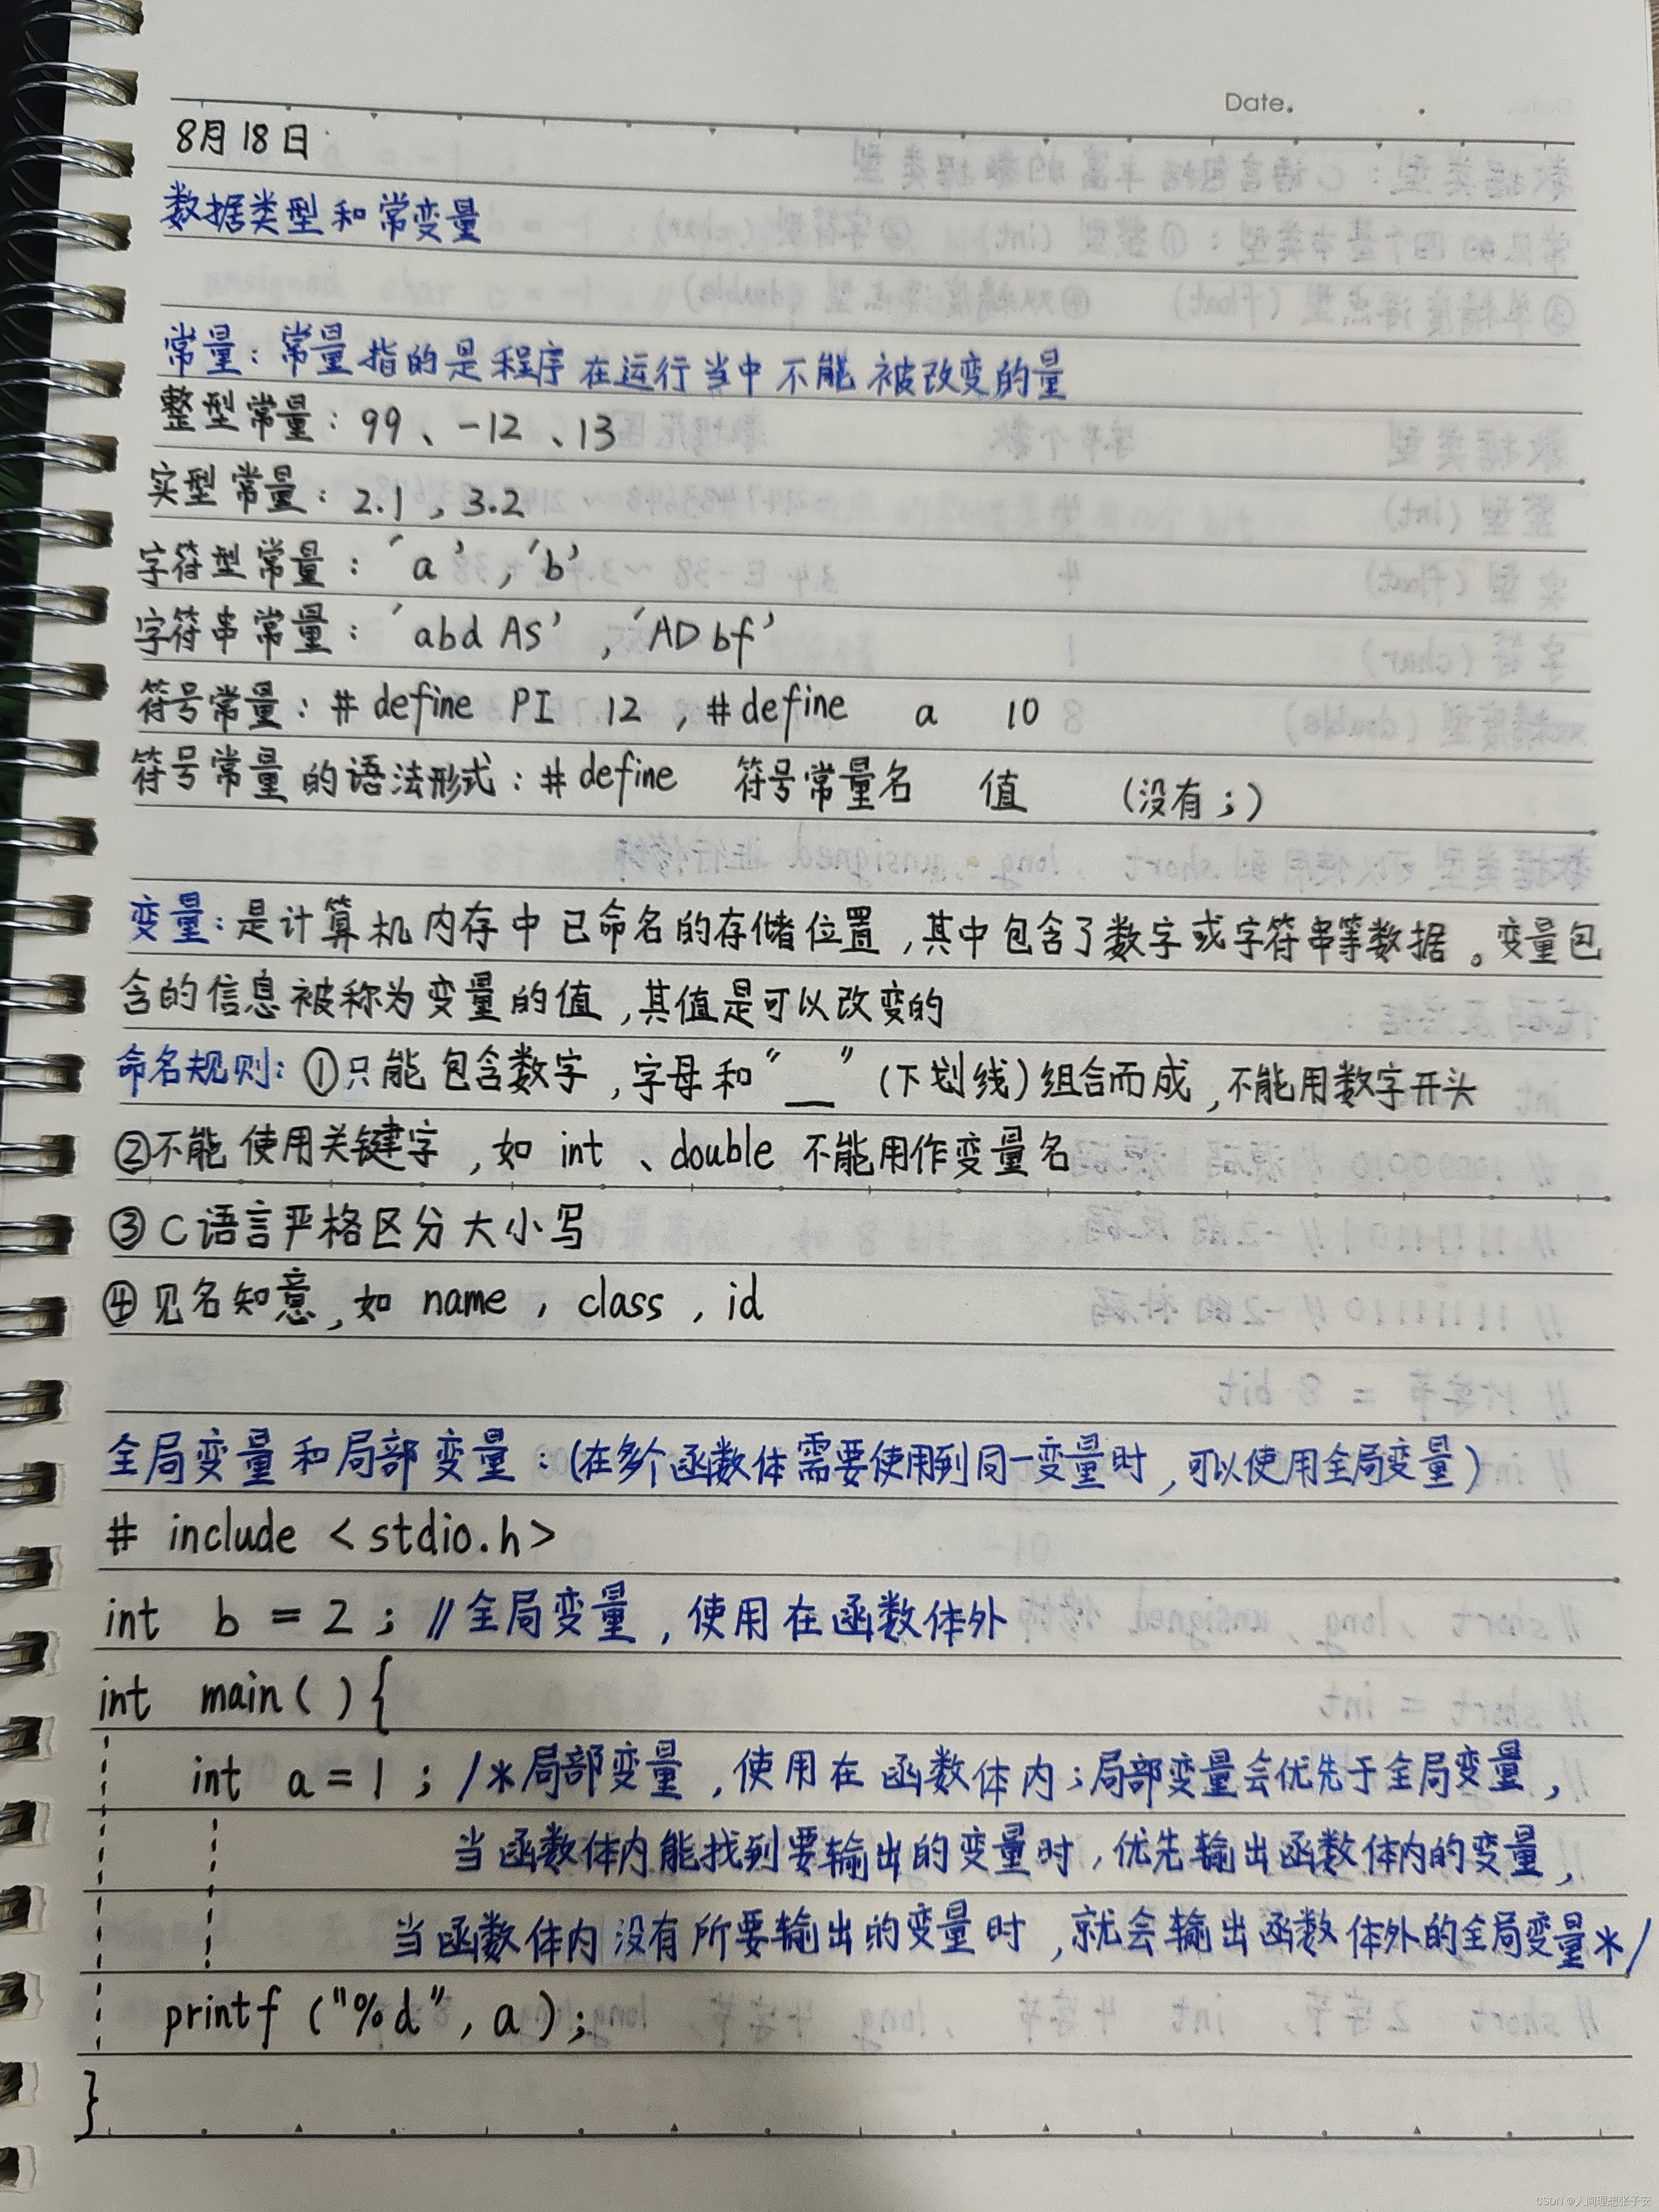 Date.
8月18日
数据类型和常变量
常量：常量指的是程序在运行当中不能被改变的量
整型常量：99、-12、13
实型常量：2.1，3.2
字符型常量：'a'，'b'
字符串常量：'abd AS'，'AD bf'
符号常量：# define PI 12，# define a 10
符号常量的语法形式：# define 符号常量名 值 （没有；）
变量：是计算机内存中已命名的存储位置，其中包含了数字或字符串等数据。变量包
含的信息被称为变量的值，其值是可以改变的
命名规则：①只能包含数字，字母和"_"（下划线）组合而成，不能用数字开头
②不能使用关键字，如 int、double 不能用作变量名
③C语言严格区分大小写
④见名知意，如 name，class，id
全局变量和局部变量：（在多个函数体需要使用到同一变量时，可以使用全局变量）
# include <stdio.h>
int b = 2; //全局变量，使用在函数体外
int main( ){
int a = 1; /*局部变量，使用在函数体内；局部变量会优先于全局变量，
当函数体内能找到要输出的变量时，优先输出函数体内的变量，
当函数体内没有所要输出的变量时，就会输出函数体外的全局变量*/
printf ("%d", a);
}
CSDN @人间理想张子安